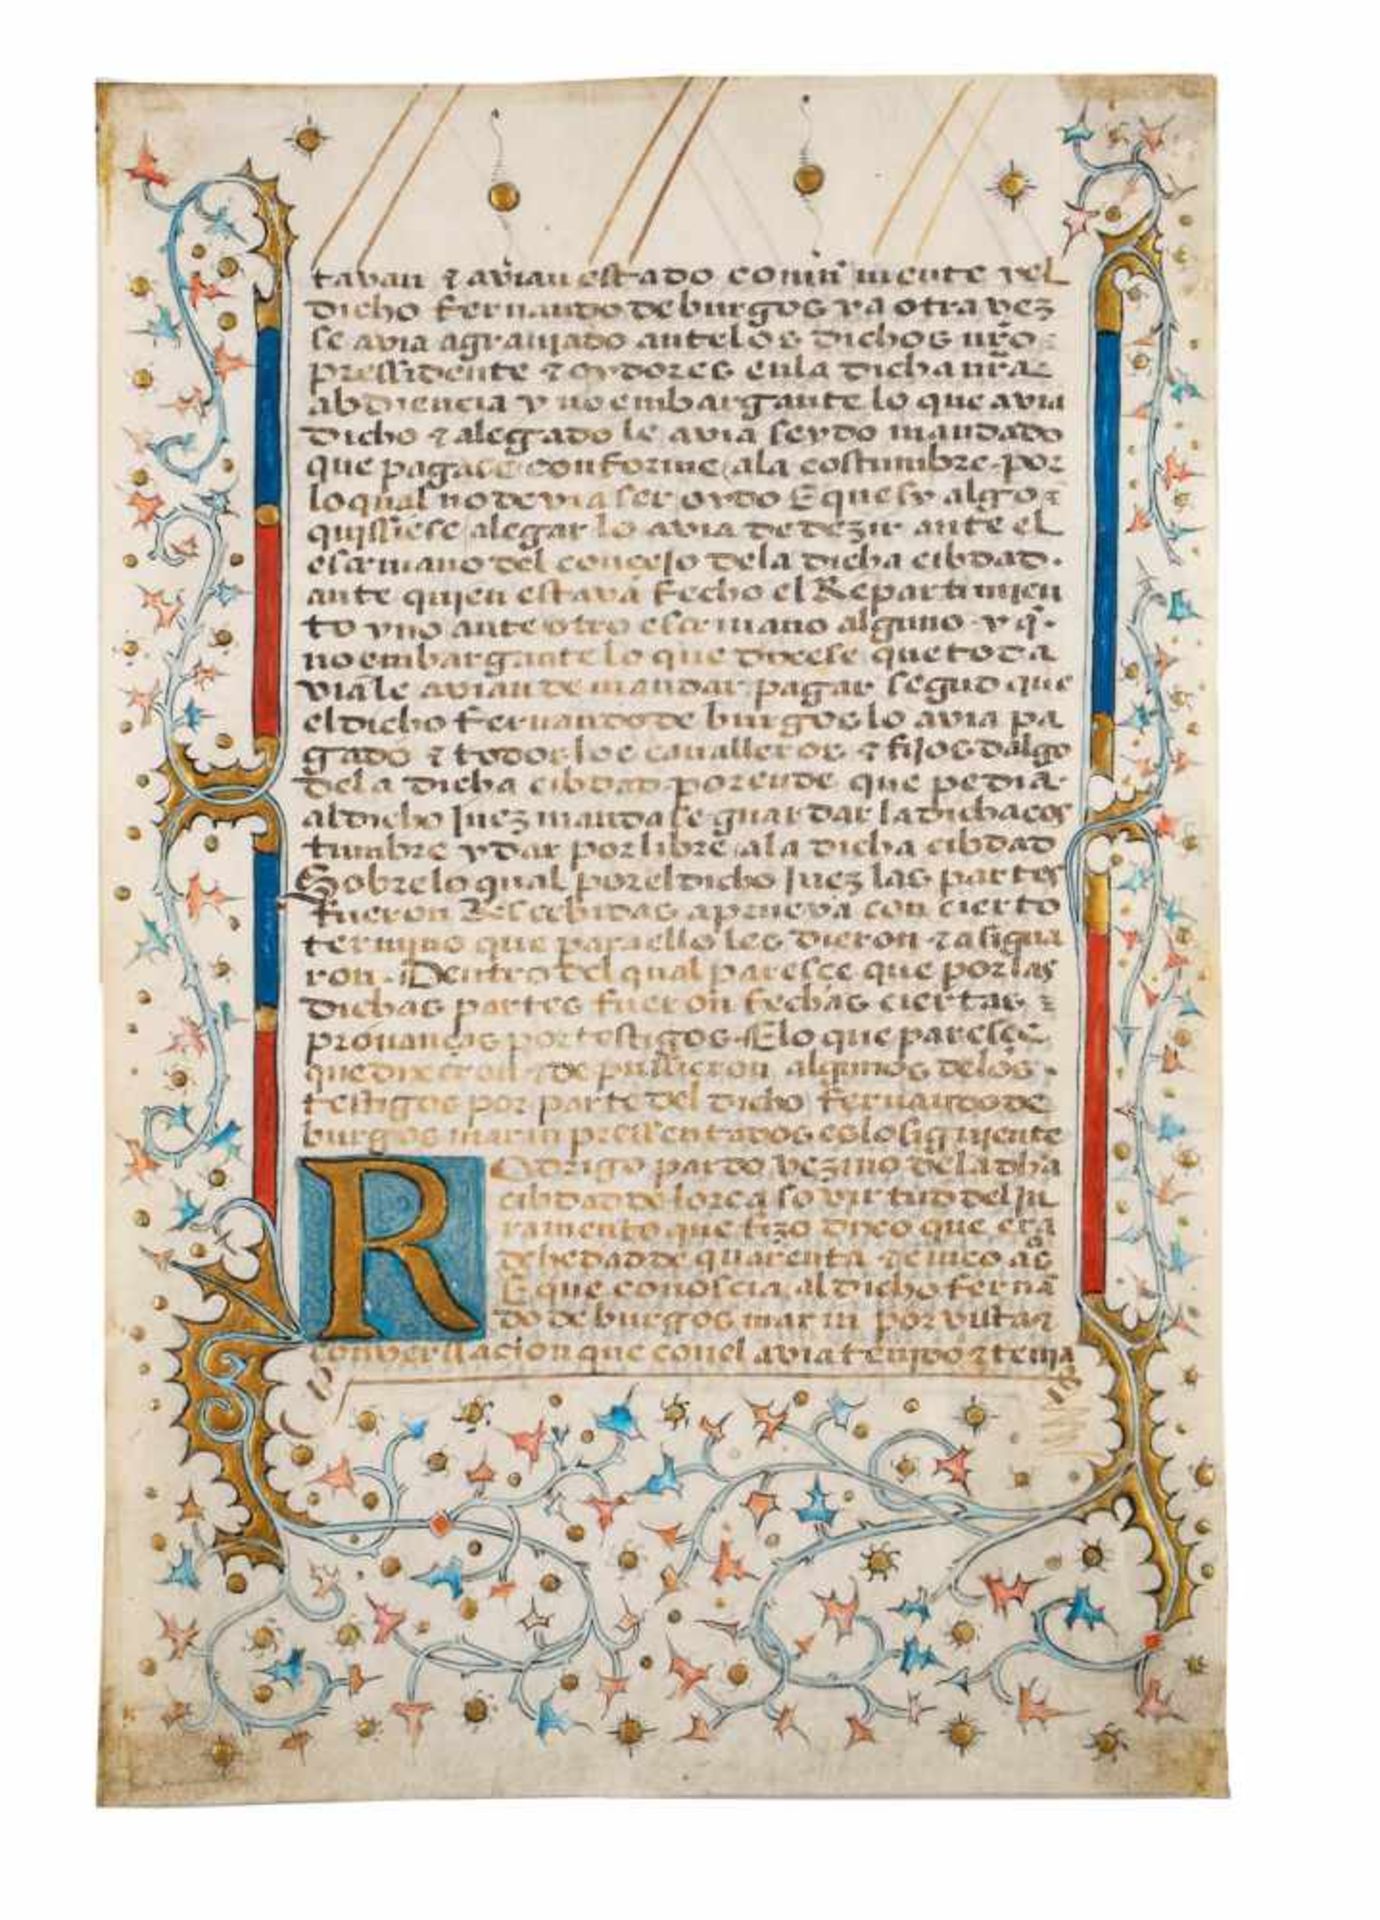 tavan & avian estado comū mente y el
dicho fernando de burgos ya otra vez
se avia agraujado ante los dichos nr̃o
pressidente & oydores en la dicha nr̃a
abdiencia y no embargante lo que avia
dicho & alegado le avia seydo mandado
que pagase conforme a la costumbre por
lo qual no devia ser oydo E que sy algo
quisiese alegar lo avia de dezir ante el
escriuano del concejo dela dicha cibdad.
ante quien estava fecho el Repartimjen
to y no ante otro escriuano alguno y q̄.
no embargante lo que dixese que toda
via le avian de mandar pagar segūd que
el dicho fernando de burgos lo avia pa
gado & todos los caualleros & fijos dalgo
dela dicha cibdad por ende que pedia
al dicho Juez mandase guardar la dicha cos
tumbre y dar por libre a la dicha cibdad
Sobre lo qual por el dicho Juez las partes
fueron Rescebidas a prueva con cierto
termino que para ello les dieron & asigna
ron. Dentro del qual paresce que por las
dichas partes fueron fechas ciertas
prouanças por testigos. E lo que paresçe
que dixeron & depussieron algunos delos.
testigos por parte del dicho fernando de
burgos marin pressentados es lo siguiente
Rodrigo pardo vezino de la dha
cibdad de lorca so virtud del ju
ramento que fizo dixo que era
de hedad de quarenta & cinco aºs
E que conoscia al dicho fernā
do de burgos marin por vista &
converssacion que con el avia tenido & tenia